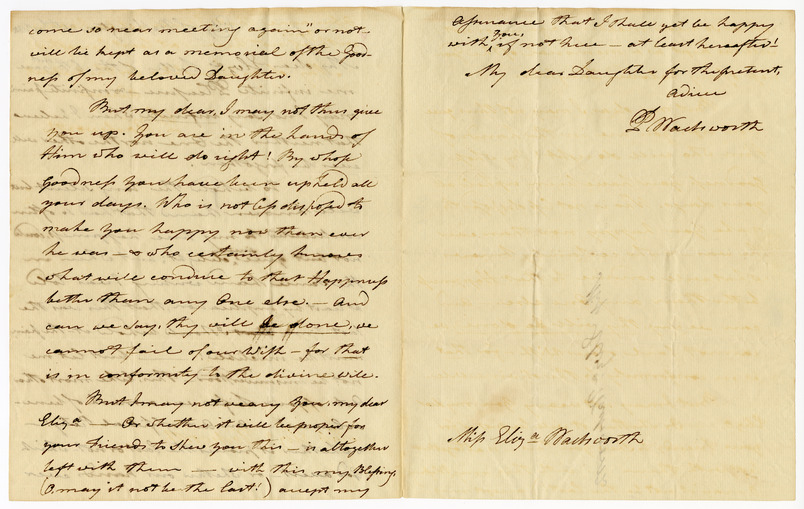 come so near meeting again" or not
will be kept as a memorial of the Good-
ness of my beloved Daughter.
But my dear, I may not thus give
you up. You are in the hands of
Him who will do right! By whose
Goodness you have been upheld all
your days. Who is not less disposed to
make you happy now than ever
he was — & who certainly knows
what will conduce to that Happiness
better than any One else. — And
can we say, thy will be done, we
cannot fail of our Wish — for that
is in conformity to the divine will.
But I may not weary you, my dear
Eliza — Or whether it will be proper for
your friends to shew you this — is altogether
left with them — with this my Blessing,
(O may it not be the last!) accept my
Assurance that I shall yet be happy
with you if not here — at least hereafter!
My dear Daughter for the present,
adieu
P Wadsworth
Miss Eliza Wadsworth